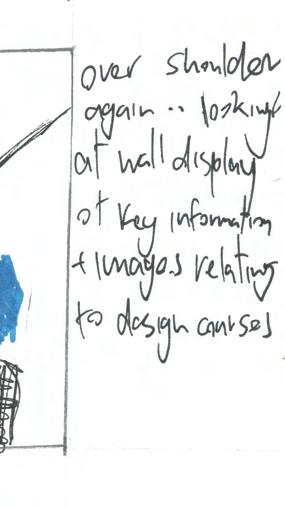 over shoulder
again .. looking
at wall display
of key information
+ images relating
to design courses